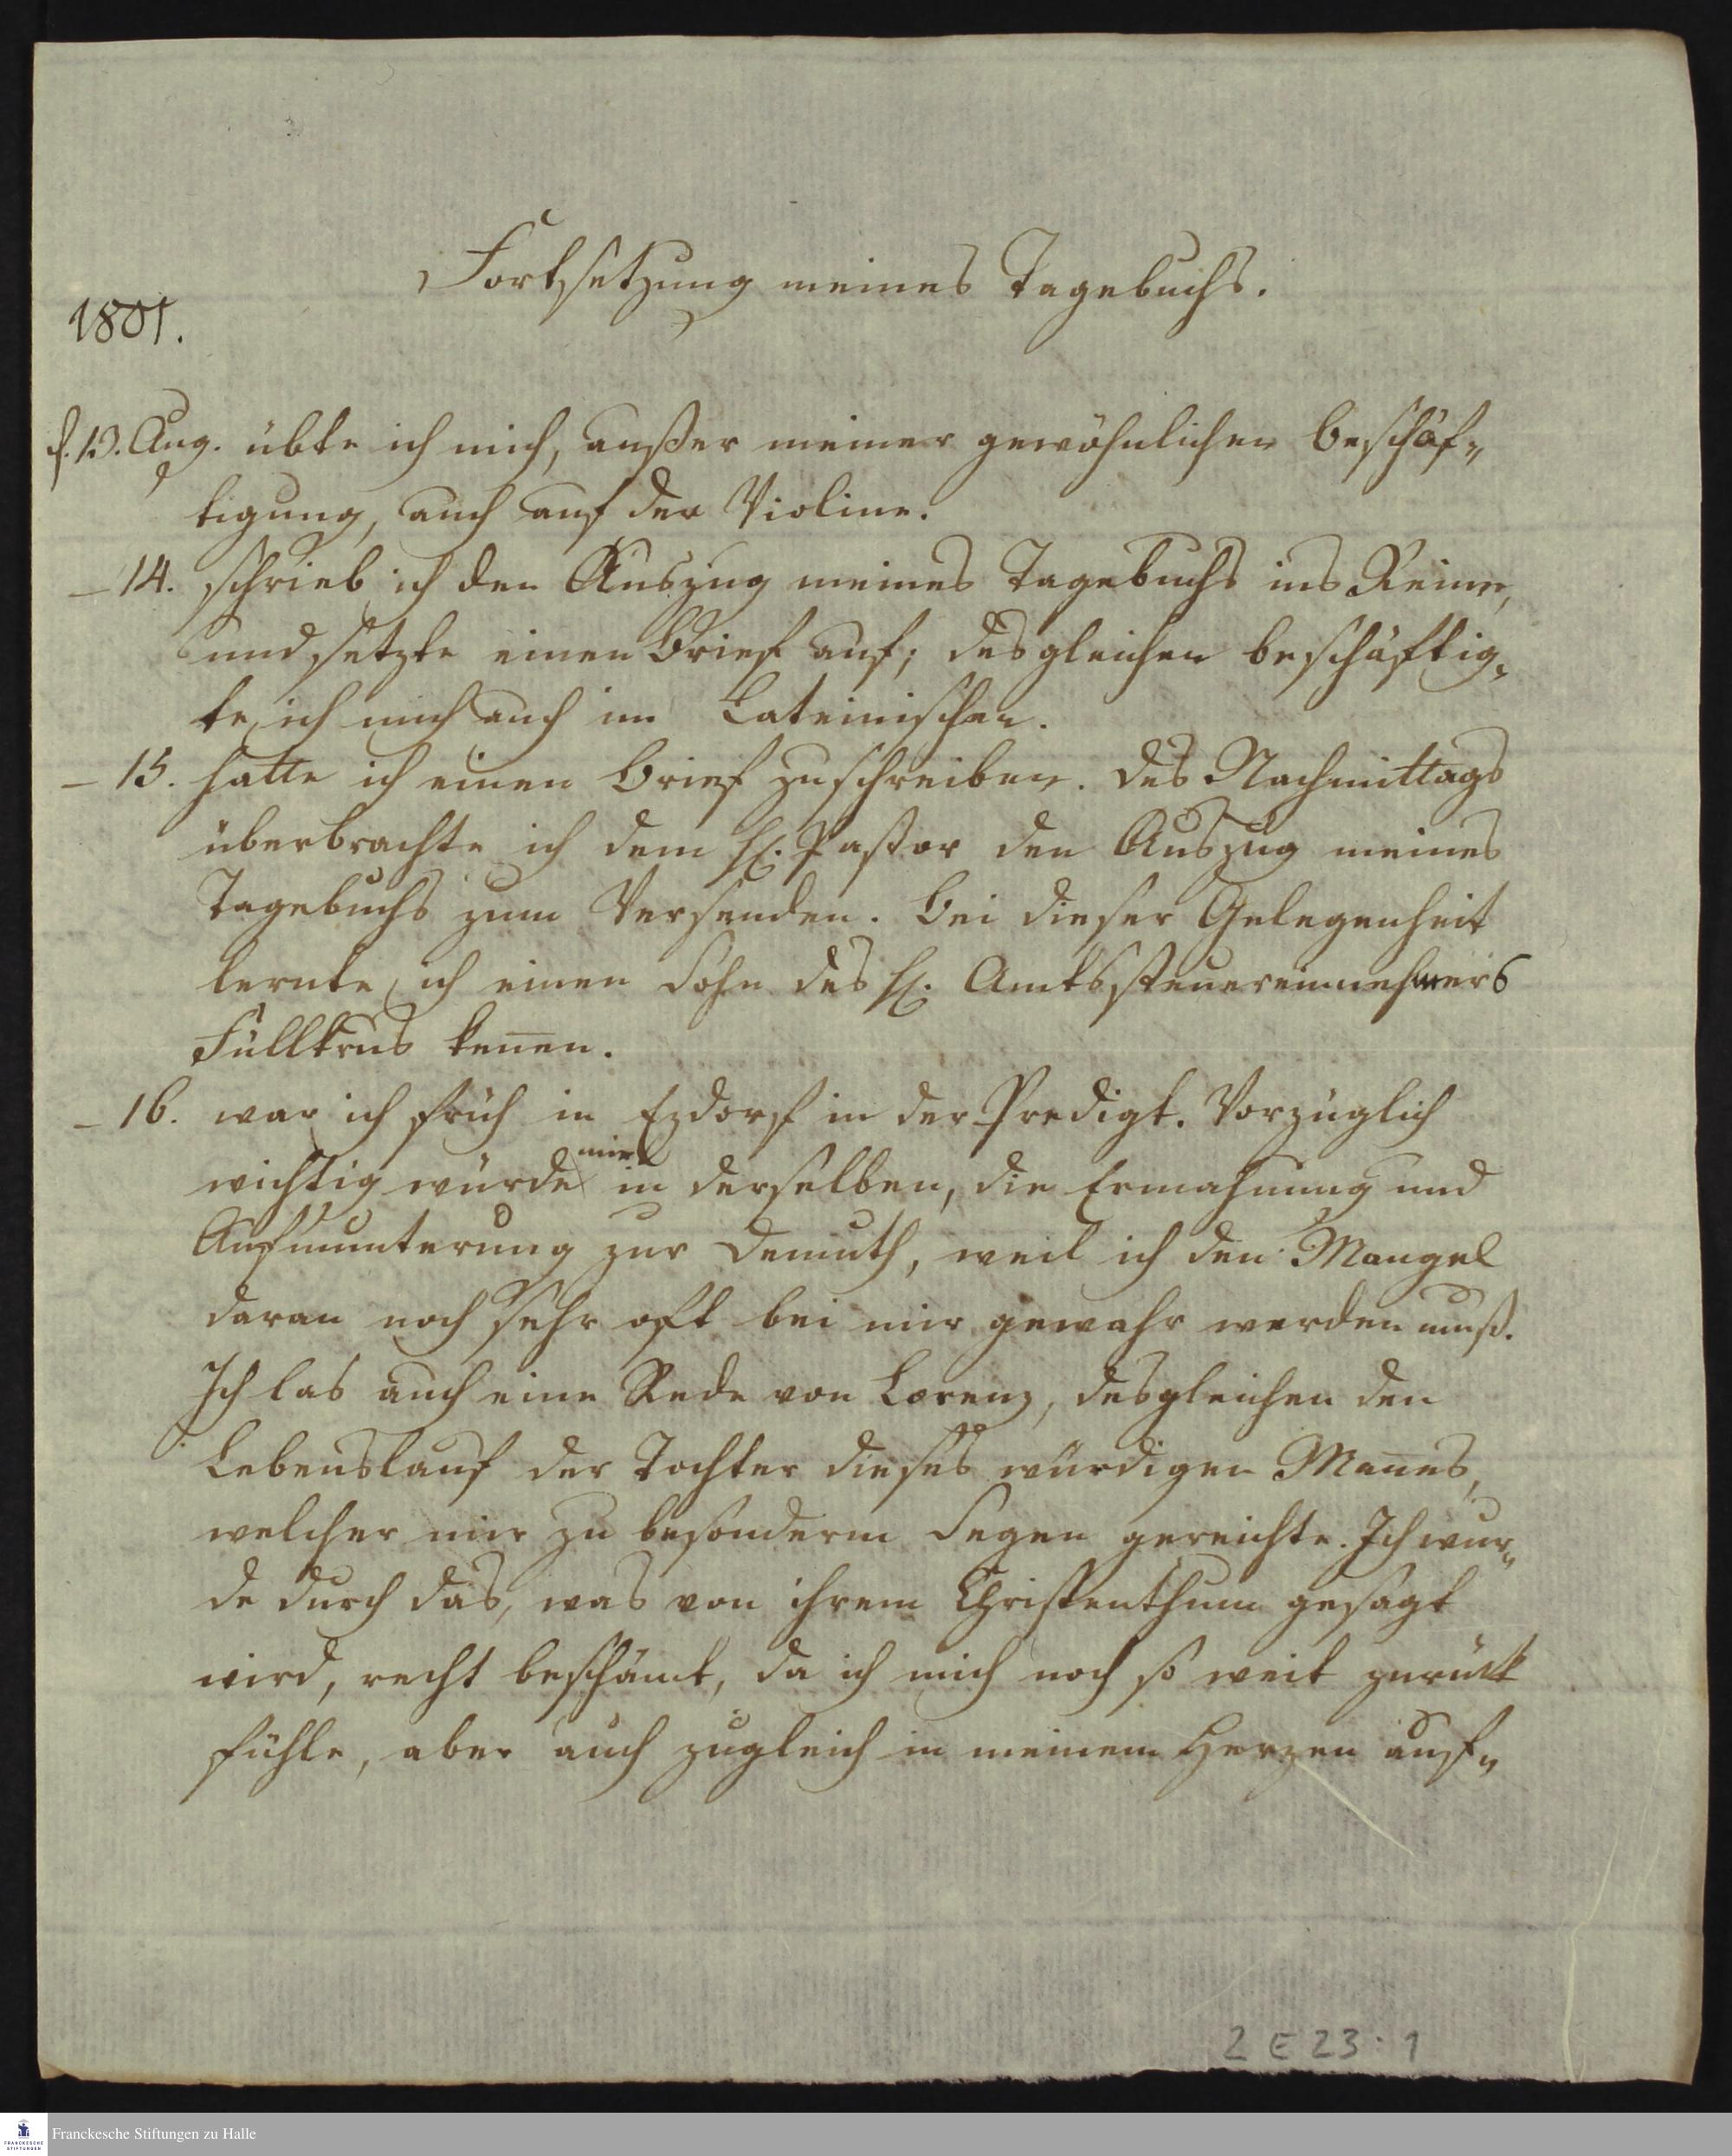 Fortsetzung meines Tagebuchs.
1801.
d. 13. Aug. übte ich mich, außer meiner gewöhnlichen Beschäf-
tigung, auch auf der Violine.
– 14. schrieb ich den Auszug meines Tagebuchs ins Reine,
und setzte einen Brief auf; desgleichen beschäftig-
te ich mich auch im Lateinischen.
– 15. hatte ich einen Brief zu schreiben. Des Nachmittags
überbrachte ich dem H. Pastor den Auszug meines
Tagebuchs zum Versenden. Bei dieser Gelegenheit
lernte ich einen Sohn des H. Amtssteuereinnehmers
Füllkrus kennen.
– 16. war ich früh in Ezdorf in der Predigt. Vorzüglich
wichtig wurde mir in derselben, die Ermahnung und
Aufmunterung zur Demuth, weil ich den Mangel
daran noch sehr oft bei mir gewahr werden muß.
Ich las auch eine Rede von Lorenz, desgleichen den
Lebenslauf der Tochter dieses würdigen Mannes,
welcher mir zu besonderm Segen gereichte. Ich wur-
de durch das, was von ihrem Christenthum gesagt
wird, recht beschämt, da ich mich noch so weit zurück
fühle, aber auch zugleich in meinem Herzen auf-
2 E 23 : 1
FRANCKESCHE STIFTUNGEN
Franckesche Stiftungen zu Halle